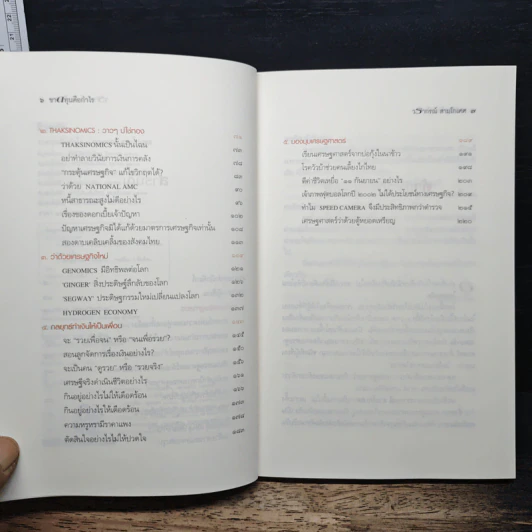 ๖ ขาดทุนคือกำไร
๒. THAKSINOMICS : วาดๆ ปาโถกอง
THAKSINOMICS นั้นเป็นไฉน
อย่าทำลายวินัยการเงินการคลัง
"กระตุ้นเศรษฐกิจ" แก้ไขวิกฤตได้?
ว่าด้วย NATIONAL AMC
หนี้สาธารณะสูงไม่ดีอย่างไร
เรื่องของดอกเบี้ยเจ้าปัญหา
ปัญหาเศรษฐกิจมิได้แก้ด้วยมาตรการเศรษฐกิจเท่านั้น
สองดาบเคลือบเคล็มของสังคมไทย
๓. ว่าด้วยเศรษฐกิจใหม่
GENOMICS มีอิทธิพลต่อโลก
'GINGER' สิ่งประดิษฐ์ลึกลับของโลก
'SEGWAY' ประดิษฐกรรมใหม่เปลี่ยนแปลงโลก
HYDROGEN ECONOMY
๔. กลยุทธ์ทำเงินให้เป็นเพื่อน
จะ "รวยเพื่อจน" หรือ "จนเพื่อรวย"?
สอนลูกจัดการเรื่องเงินอย่างไร?
จะเป็นคน "ดูรวย" หรือ "รวยจริง"
เศรษฐีจริงดำเนินชีวิตอย่างไร
กินอยู่อย่างไรไม่ให้เดือดร้อน
กินอยู่อย่างไรให้เดือดร้อน
ความหรูหรามีราคาแพง
ตัดสินใจอย่างไรไม่ให้ปวดใจ
วรากรณ์ สามโกเศศ ๗
๕. มองมุมเศรษฐศาสตร์
เรียนเศรษฐศาสตร์จากบ่อกุ้งในนาข้าว
โรควัวบ้าช่วยคนเลี้ยงไก่ไทย
ตีค่าชีวิตเหยื่อ "๑๑ กันยายน" อย่างไร
เจ้าภาพฟุตบอลโลกปี ๒๐๐๒ ไม่ได้ประโยชน์ทางเศรษฐกิจ?
ทำไม SPEED CAMERA จึงมีประสิทธิภาพกว่าตำรวจ
เศรษฐศาสตร์ว่าด้วยตู้หยอดเหรียญ ๒๒๐